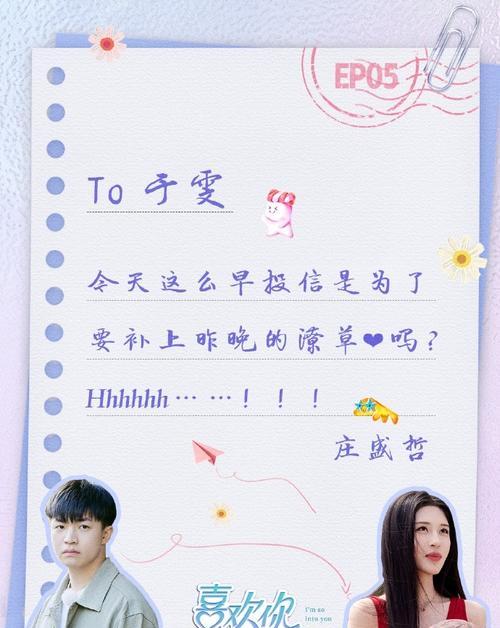 EP05
To 于雯
今天这么早投信是为了
要补上昨晚的潦草❤吗?
Hhhhhh……！！！
庄盛哲
喜欢你
I'm so
into you